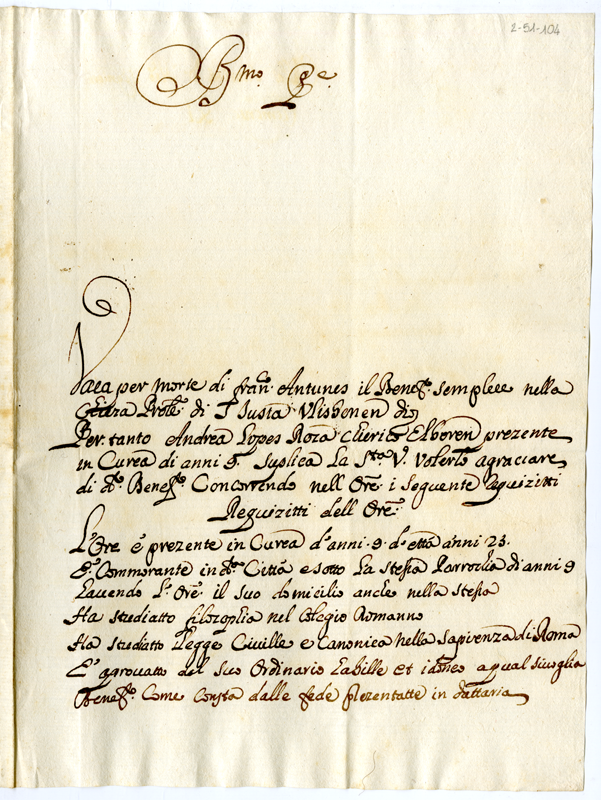 2-51-104
Bmo. Pe.
Vaca per morte di Franco. Antunes il Benefo. Semplece nella
Chiesa Proble. di S Justa Vlisbonen dio
Per tanto Andrea Lopes Roza Clierico Elboren prezente
in Curea di anni 9. Suplica La Sta. V. Volerlo agraciare
di do. Benefo. Concorrendo nell Ore. i seguente Requizitti
Requizitti dell Ore.
L'Ore è prezente in Curea d'anni 9 d'ettà anni 23.
E Commorante in do. Città e sotto La stessa Parrochia di anni 9
havendo L'Ore. il suo domicilio anche nella stessa
Ha studiatto filozophia nel Colegio Romanno
Ha studiatto Legge Civille e Canonica nella sapienza di Roma
E' aprovatto del suo Ordinario habille et idoneo a qual sivoglia
Benefo. Come Consta dalle fede prezentatte in dattaria